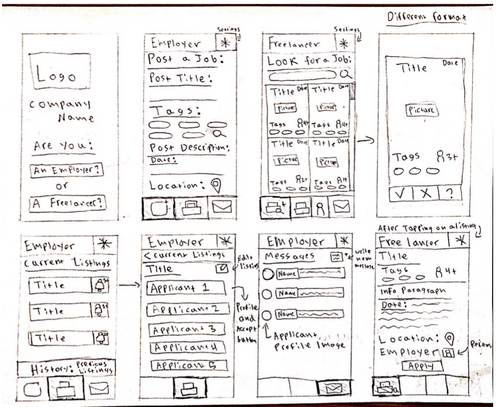 Different format
Logo
Company
Name
Are you:
An Employer?
or
A Freelancer?
Settings
Employer
Post a Job:
Post Title:
Tags:
Post Description:
Date:
Location:
Settings
Freelancer
Look for a Job:
Title Date
Picture
Tags
Title Date
Picture
Tags
Title Date
Picture
Tags
Title Date
Picture
Tags
Title Date
Picture
Tags
3+
√ X ?
Employer
Current Listings
Title
Title
Title
History: Previous
Listings
Employer
< Current Listings
Title
Applicant 1
Applicant 2
Applicant 3
Applicant 4
Applicant 5
Edit
listing
Profile
and
Accept
button
Employer
Messages
Name
Name
Name
Applicant
Profile Image
write
new
message
After Tapping on a listing
Freelancer
Title
Tags
4+
Info Paragraph
Date:
Location:
Employer
Apply